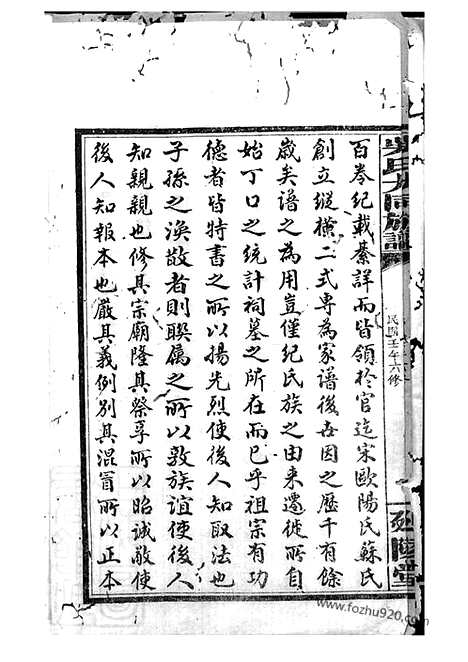 百卷紀載綦詳而皆領於官迄宋歐陽氏蘇氏
創立縱橫二式專為家譜後世因之歷千有餘
歲矣譜之為用豈僅紀氏族之由来遷徙所自
始丁口之統計祠墓之所在而已乎祖宗有功
德者皆特書之所以揚先烈使後人知取法也
子孫之渙散者則聯属之所以敦族誼使後人
知親親也修其宗廟隆其祭享所以昭誠敬使
後人知報本也嚴其義例別其混冒所以正本
吳氏大同族譜
民國壬午六修
www.fozhu920.com